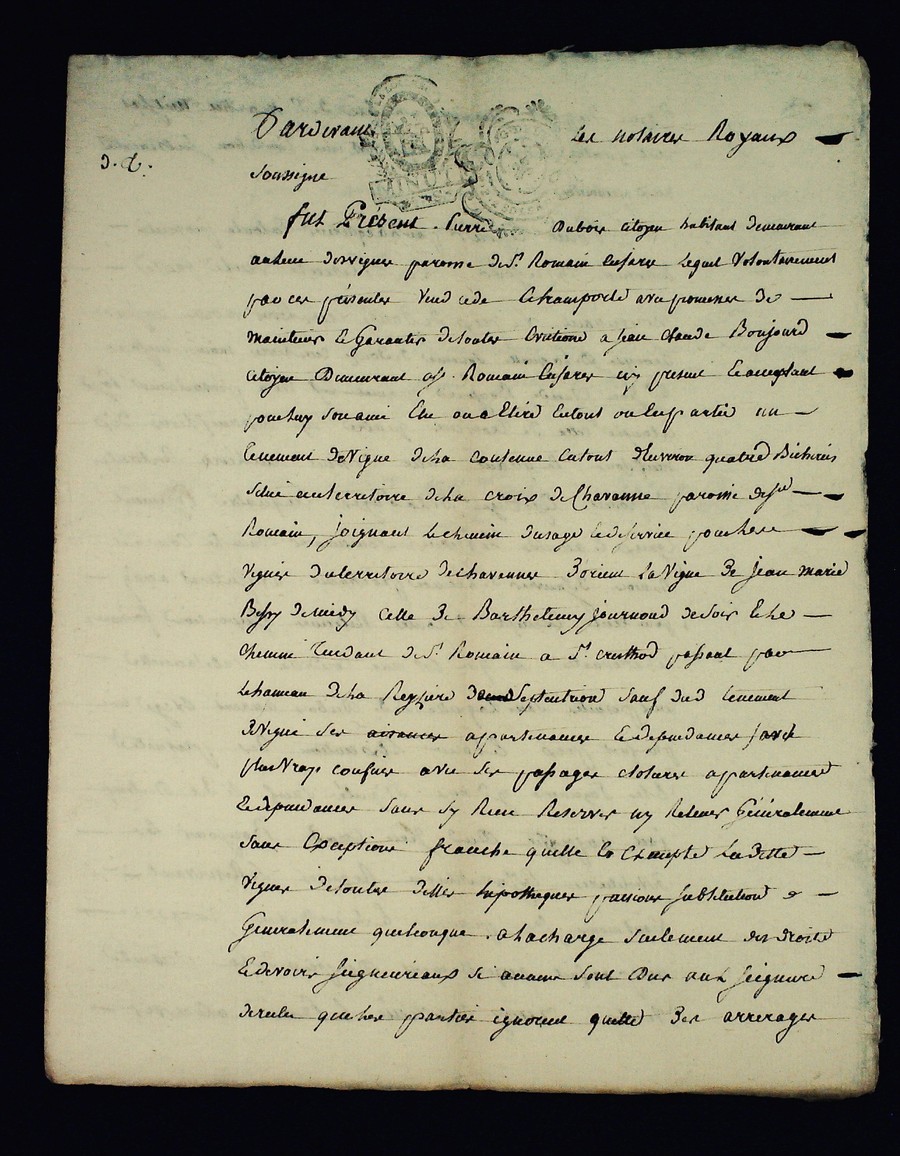 Pardevant les notaires Royaux
D. D.
soussigne
MINUTE
fut Présent Pierre Dubois citoyen habitant demeurant
au lieu des vignes paroisse de St Romain lequel Volontairement
par ces présentes Vend cede et transporte avec promesse de
maintenir et Garantir de toutes Evictions a jean Claude Boujourd
Citoyen Demeurant a St Romain icy present et acceptant
pour luy son ami Elu ou a Elire en tout ou en partie un
tenement de Vigne de la contenue en tout d'Environ quatre Bicherées
situé au territoire de la croix de Chavanne paroisse de St
Romain, joignant le chemin d'usage et de service pour les
vignes du territoire de chavannes d'orient la Vigne de jean marie
Bessy de midy celle de Barthelemy journoud de soir et le
chemin tendant de St Romain a St passant par
le hameau de la Reyssiere de Septentrion sauf dud tenement
de Vigne ses aisances appartenances et dependances
plus Vrays confins avec ses passages clotures appartenances
et dependances sans sy Rien Reserver ny Retenir Généralement
sans Exceptions franche quitte et Exempte la ditte
vigne de toutes dettes hipotheques pensions substitutions &
Generalement quelconque a la charge seulement des droits
et devoirs seigneuriaux si aucuns sont Dus aux seigneurs
que les parties ignorent quitte des arrerages